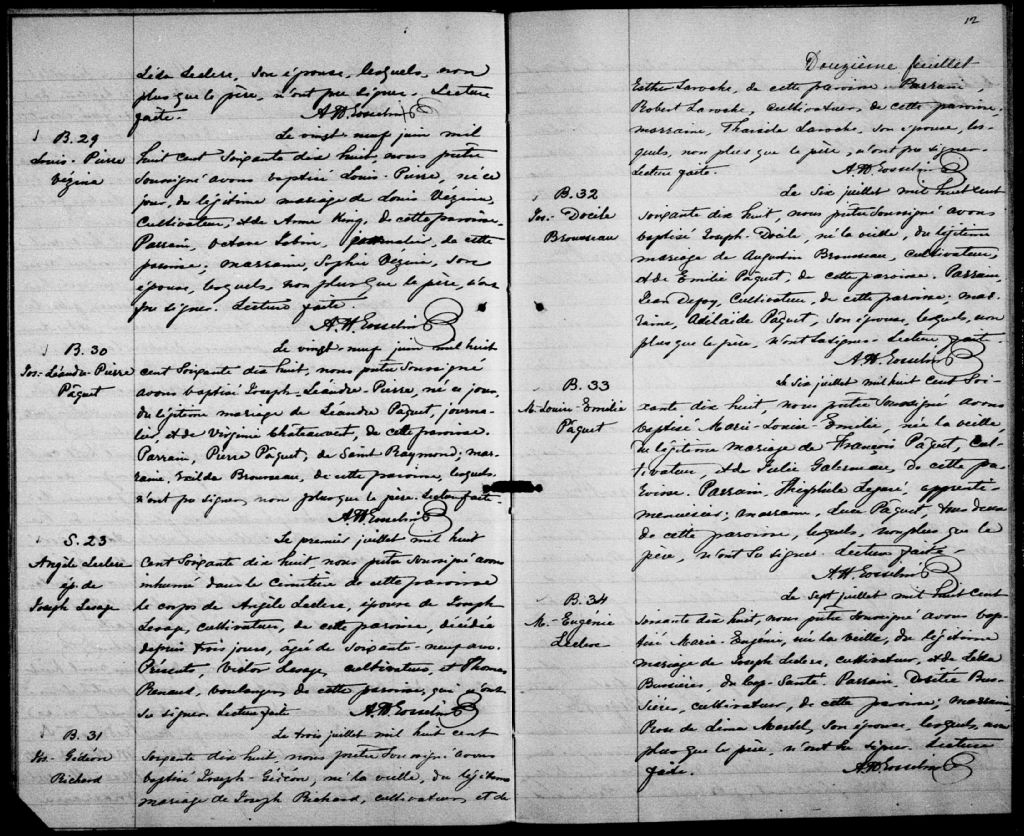 Léda Leclerc, son épouse, lesquels, non
plus que le père, n'ont pu signer. Lecture
faite. A.H. Gosselin
B. 29
Louis-Pierre
Vézina
Le vingt neuf juin mil
huit cent soixante dix huit, nous prêtre
soussigné avons baptisé Louis-Pierre, né ce
jour, du légitime mariage de Louis Vézina,
cultivateur, et de Anne King, de cette paroisse.
Parrain, Octave, journalier, de cette
paroisse; marraine, Sophie Vézina, son
épouse, lesquels, non plus que le père, n'ont
pu signer. Lecture faite.
A.H. Gosselin
B. 30
Jos.-Léandre-Pierre
Pâquet
Le vingt neuf juin mil huit
cent soixante dix huit, nous prêtre soussigné
avons baptisé Joseph-Léandre-Pierre, né ce jour,
du légitime mariage de Léandre Pâquet, journa-
lier, et de Virginie Chateauvert, de cette paroisse.
Parrain, Pierre Pâquet, de Saint Raymond; mar-
raine, Brousseau, de cette paroisse, lesquels
n'ont pu signer, non plus que le père. Lecture faite.
A.H. Gosselin
S. 23
Angèle Leclerc
ép. de
Joseph Lesage
Le premier juillet mil huit
cent soixante dix huit, nous prêtre soussigné avons
inhumé dans le cimetière de cette paroisse
le corps de Angèle Leclerc, épouse de Joseph
Lesage, cultivateur, de cette paroisse, décédée
depuis trois jours, âgée de soixante-neuf ans.
Présents, Victor Lesage, cultivateur, et Thomas
Renaud, boulanger, de cette paroisse, qui n'ont
su signer. Lecture faite A.H. Gosselin
B. 31
Jos-Gédéon
Richard
Le trois juillet mil huit cent
soixante dix huit, nous prêtre soussigné avons
baptisé Joseph-Gédéon, né la veille, du légitime
mariage de Joseph Richard, cultivateur, et de
12
Douzième feuillet
Esther Laroche, de cette paroisse. Parrain
Robert Laroche, cultivateur, de cette paroisse,
marraine, Tharsile Laroche, son épouse, les-
quels, non plus que le père, n'ont pu signer.
Lecture faite. A.H. Gosselin
B. 32
Jos.-Docile
Brousseau
Le six juillet mil huit cent
soixante dix huit, nous prêtre soussigné avons
baptisé Joseph-Docile, né la veille, du légitime
mariage de Augustin Brousseau, cultivateur,
et de Emilie Pâquet, de cette paroisse. Parrain,
Jean Defoy, cultivateur, de cette paroisse; mar-
raine, Adélaïde Pâquet, son épouse, lesquels, non
plus que le père, n'ont su signer. Lecture faite.
A.H. Gosselin
B. 33
M.-Louise-Emilie
Pâquet
Le six juillet mil huit cent soi-
xante dix huit, nous prêtre soussigné avons
baptisé Marie-Louise-Emilie, née la veille
du légitime mariage de François Pâquet, cul-
tivateur, et de Julie Galerneau, de cette pa-
roisse. Parrain, Théophile Légaré, apprenti-
menuisier; marraine, Luce Pâquet, tous deux
de cette paroisse, lesquels, non plus que le
père, n'ont su signer. Lecture faite-
A.H. Gosselin
B. 34
M.-Eugénie
Leclerc
Le sept juillet mil huit cent
soixante dix huit, nous prêtre soussigné avons bap-
tisé Marie-Eugénie, née la veille, du légitime
mariage de Joseph Leclerc, cultivateur, et de Léda
Bussières, du Cap-Santé. Parrain, Désiré Bus-
sières, cultivateur, de cette paroisse; marraine
Rose de Lima Martel, son épouse, lesquels, non
plus que le père, n'ont su signer. Lecture
faite. A.H. Gosselin